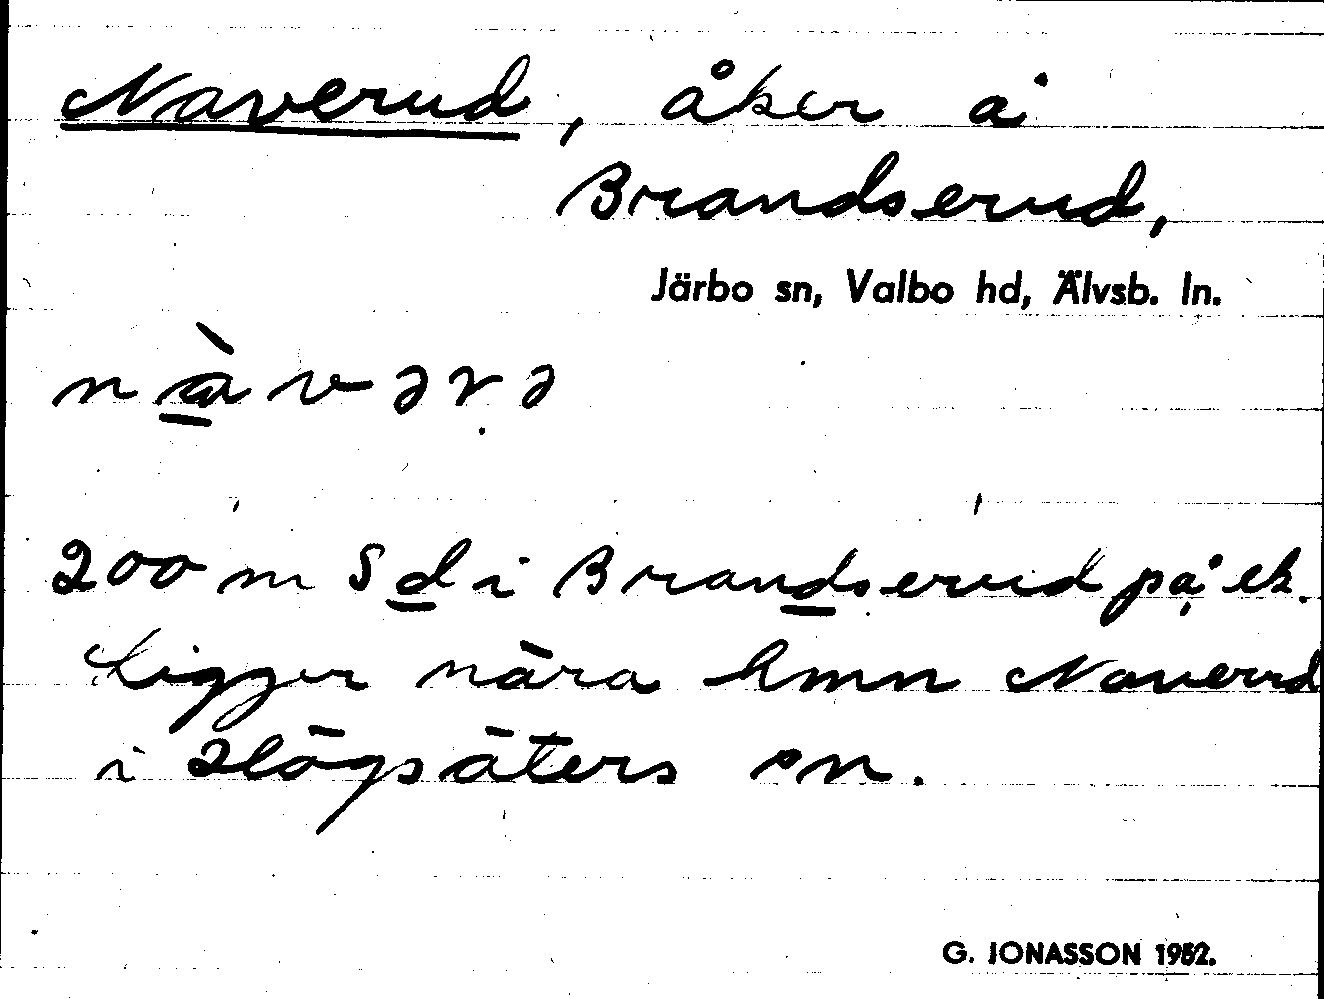 Naverud, åker å
Brandserud,
Järbo sn, Valbo hd, Älvsb. ln.
nàvərə
200 m S d i Brandserud på ek.
Ligger nära hmn Naverud
i Högsäters sn.
G. JONASSON 1952.